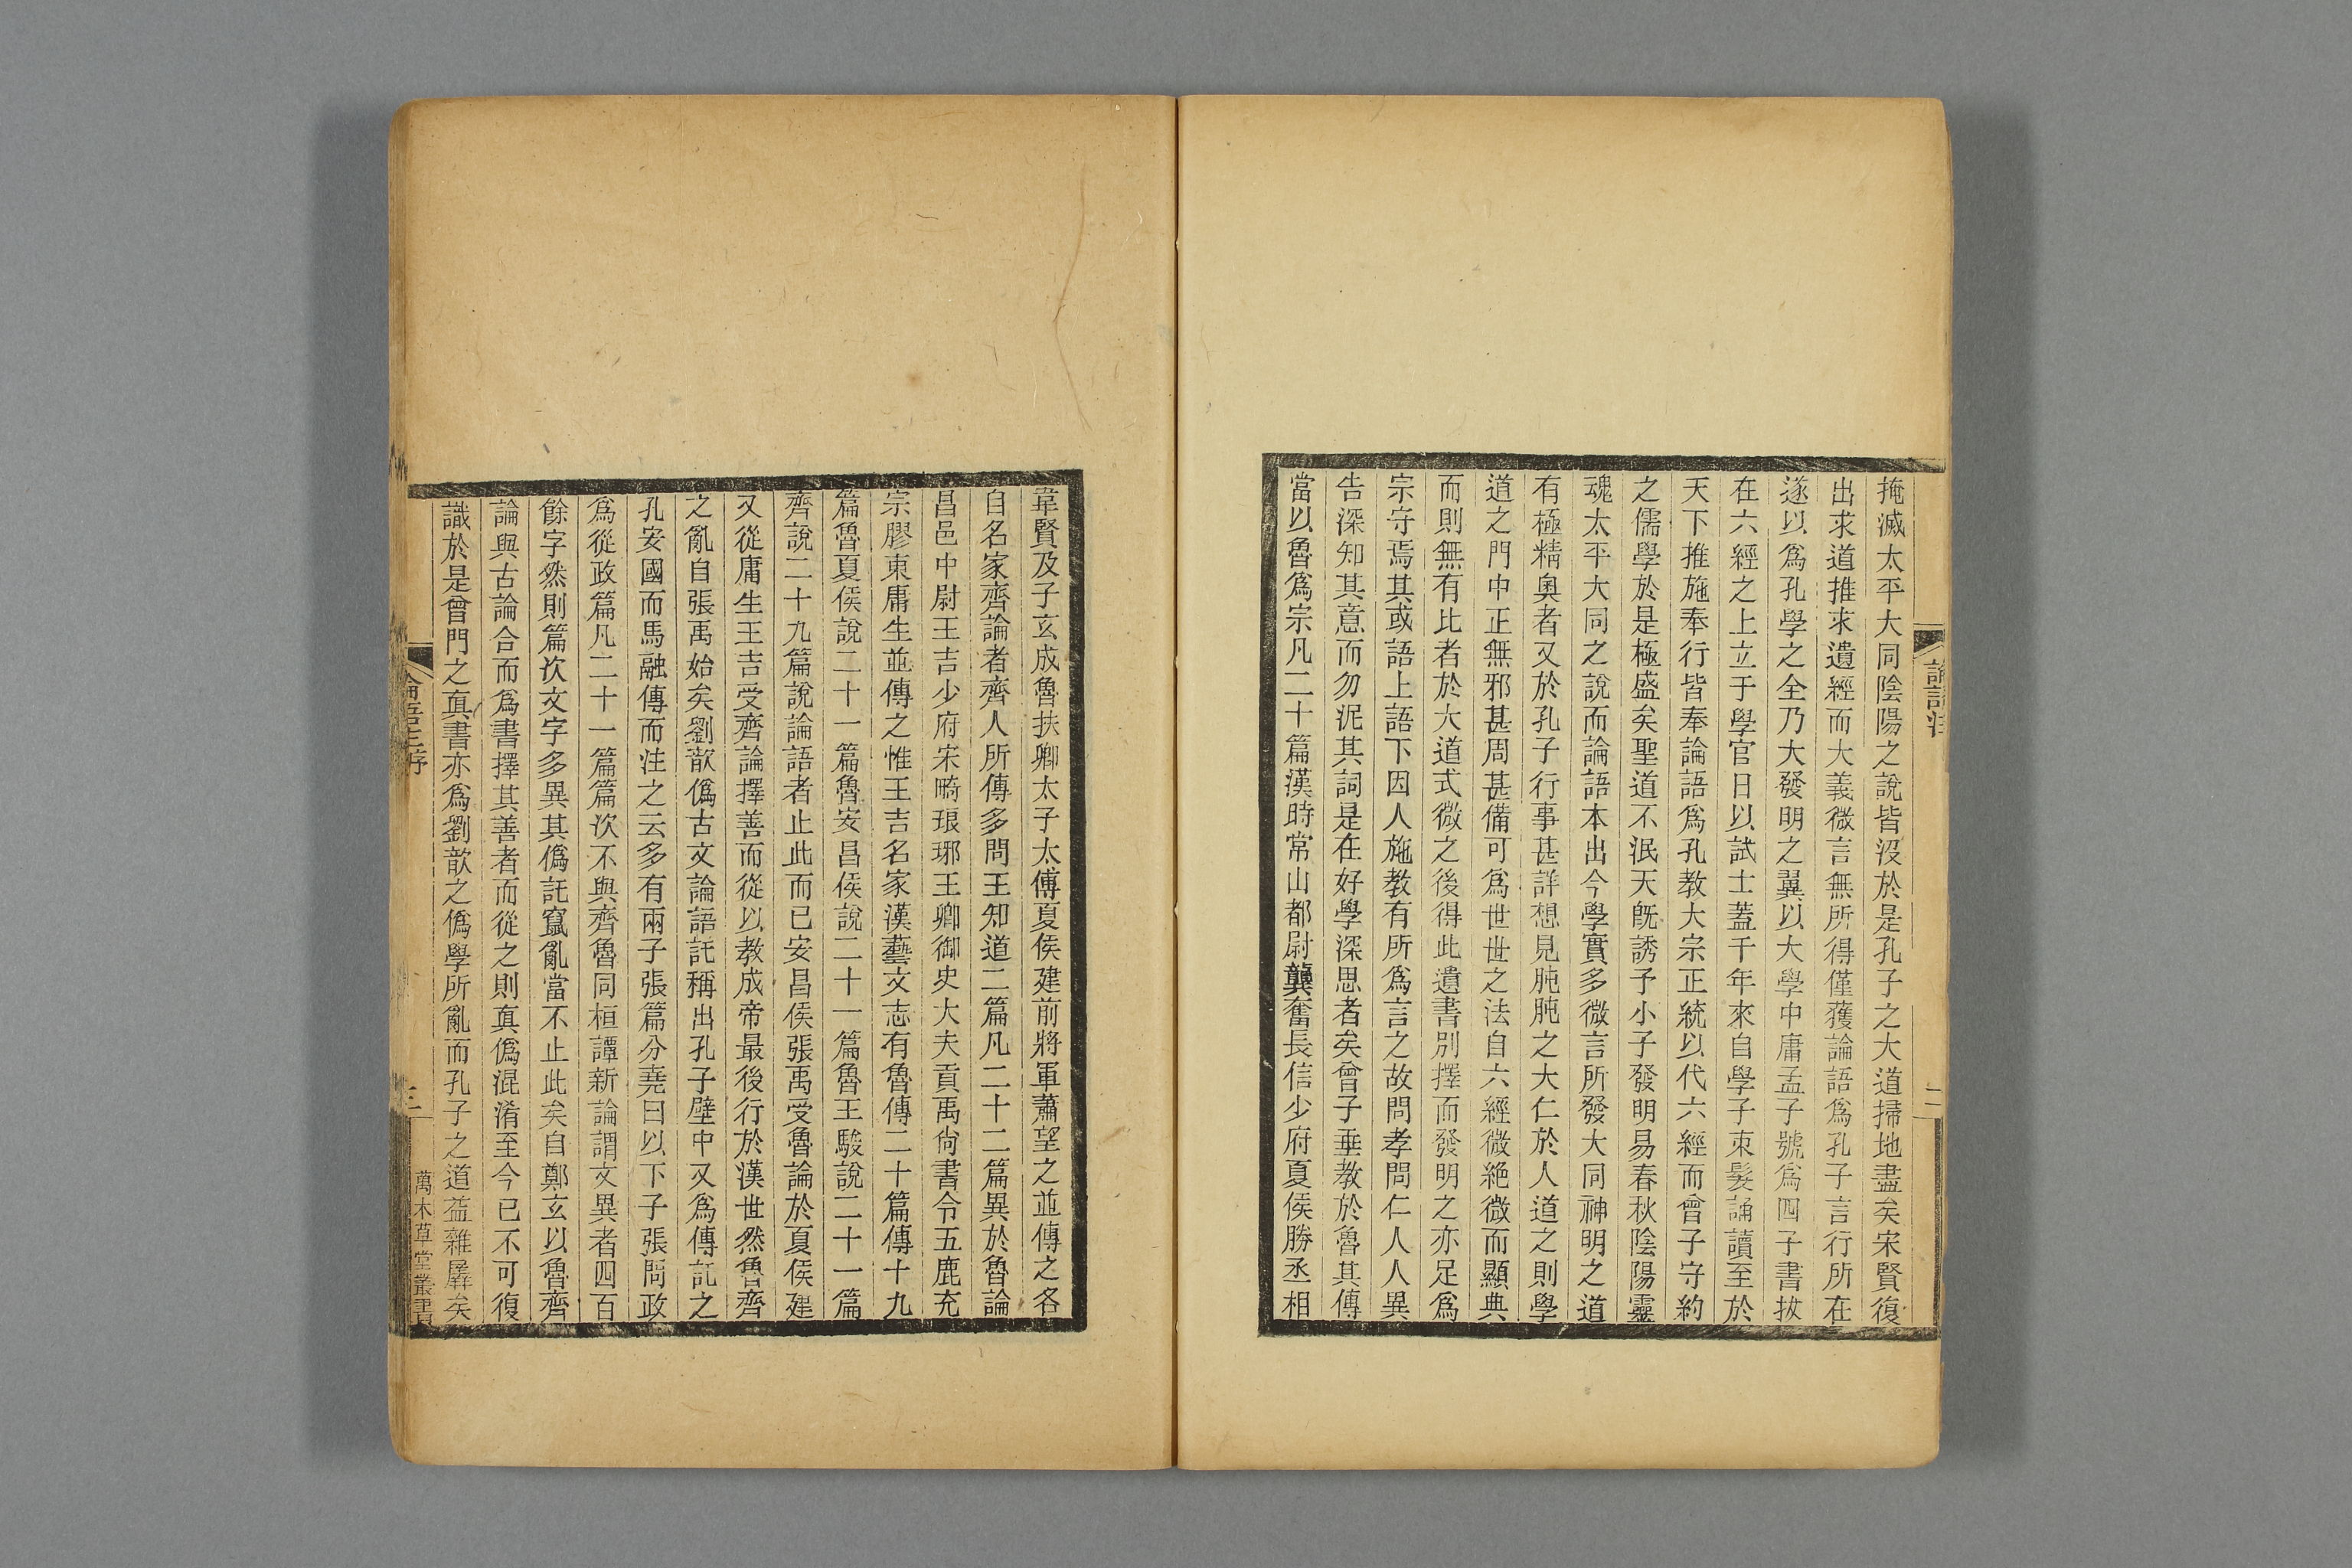 論語注
二
掩滅太平大同陰陽之說皆沒於是孔子之大道掃地盡矣宋賢復
出求道推求遺經而大義微言無所得僅獲論語爲孔子言行所在
遂以爲孔學之全乃大發明之翼以大學中庸孟子號爲四子書拔
在六經之上立于學官日以試士蓋千年來自學子束髮誦讀至於
天下推施奉行皆奉論語爲孔教大宗正統以代六經而曾子守約
之儒學於是極盛矣聖道不泯天旣誘予小子發明易春秋陰陽靈
魂太平大同之說而論語本出今學實多微言所發大同神明之道
有極精奧者又於孔子行事甚詳想見肫肫之大仁於人道之則學
道之門中正無邪甚周甚備可爲世世之法自六經微絶微而顯典
而則無有比者於大道式微之後得此遺書別擇而發明之亦足爲
宗守焉其或語上語下因人施教有所爲言之故問孝問仁人人異
告深知其意而勿泥其詞是在好學深思者矣曾子垂教於魯其傳
當以魯爲宗凡二十篇漢時常山都尉龔奮長信少府夏侯勝丞相
韋賢及子玄成魯扶卿太子太傅夏侯建前將軍蕭望之並傳之各
自名家齊論者齊人所傳多問王知道二篇凡二十二篇異於魯論
昌邑中尉王吉少府宋畸琅琊王卿御史大夫貢禹尙書令五鹿充
宗膠東庸生並傳之惟王吉名家漢藝文志有魯傳二十篇傳十九
篇魯夏侯說二十一篇魯安昌侯說二十一篇魯王駿說二十一篇
齊說二十九篇說論語者止此而已安昌侯張禹受魯論於夏侯建
又從庸生王吉受齊論擇善而從以教成帝最後行於漢世然魯齊
之亂自張禹始矣劉歆僞古文論語託稱出孔子壁中又爲傳託之
孔安國而馬融傳而注之云多有兩子張篇分堯曰以下子張問政
爲從政篇凡二十一篇篇次不與齊魯同桓譚新論謂文異者四百
餘字然則篇次文字多異其僞託竄亂當不止此矣自鄭玄以魯齊
論與古論合而爲書擇其善者而從之則眞僞混淆至今已不可復
識於是曾門之眞書亦爲劉歆之僞學所亂而孔子之道益雜羼矣
論語注序
三
萬木草堂叢書